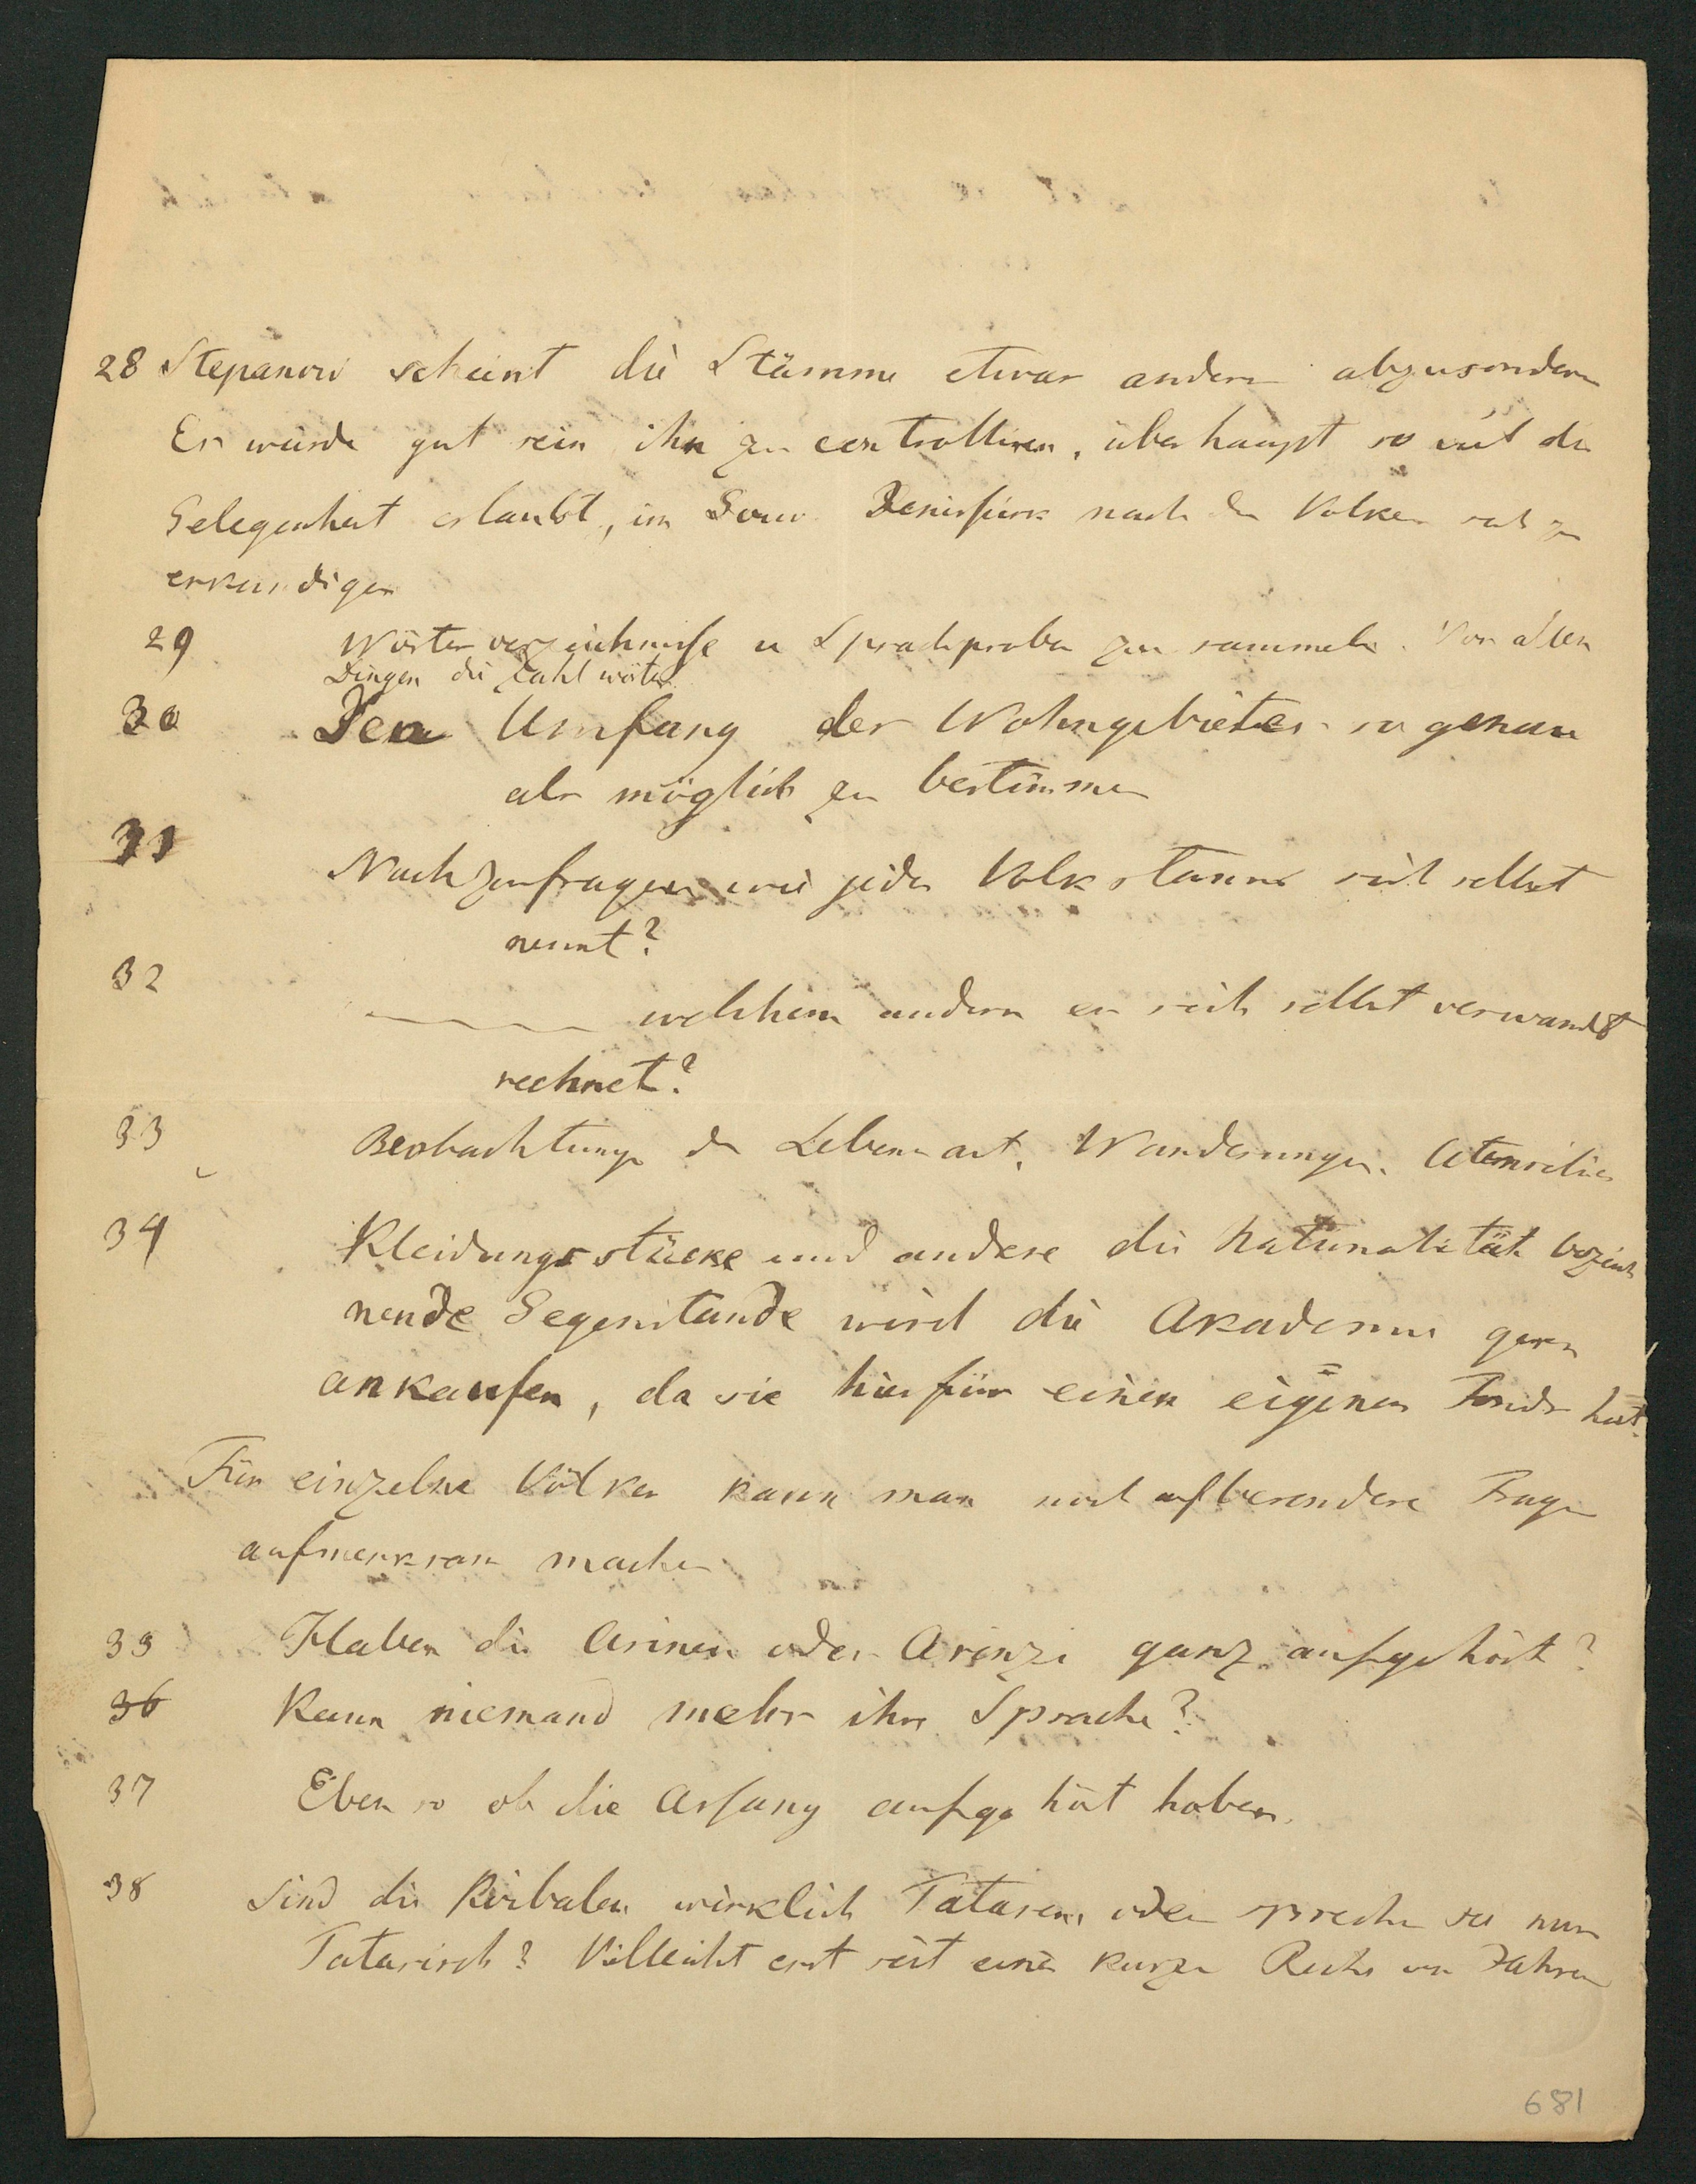 28 Stepanow scheint die Stämme etwas anders abzusondern
Es würde gut sein ihn zu controlliren, überhaupt so viel die
Gelegenheit erlaubt, im Gouv. Jenisseisk nach den Völkern sich zu
erkundigen
29 Wörterverzeichnisse u Sprachproben zu sammeln. Vor allen
Dingen die Zahlwörter.
30 Den Umfang der Wohngebietes so genau
als möglich zu bestimmen
31
Nachzufragen wie jeder Volksstamm sich selbst
nennt?
32
welchem andern er sich selbst verwandt
rechnet?
33 Beobachtungen der Lebensart, Wanderungen. Utensilien
34 Kleidungsstücke und andere die Nationalität bezeich
nende Gegenstände wird die Akademie gern
ankaufen, da sie hierfür einen eigenen Fonds hat.
Für einzelne Völker kann man noch auf besondere Fragen
aufmerksam machen
35 Haben die Arinen oder Arinzi ganz aufgehört?
36 Kann niemand mehr ihre Sprache?
37 Eben so ob die Assany aufgehört haben.
38 Sind die Koibalen wirklich Tataren, oder sprechen sie nur
Tatarisch? Vielleicht erst seit einer kurzen Reihe von Jahren
681